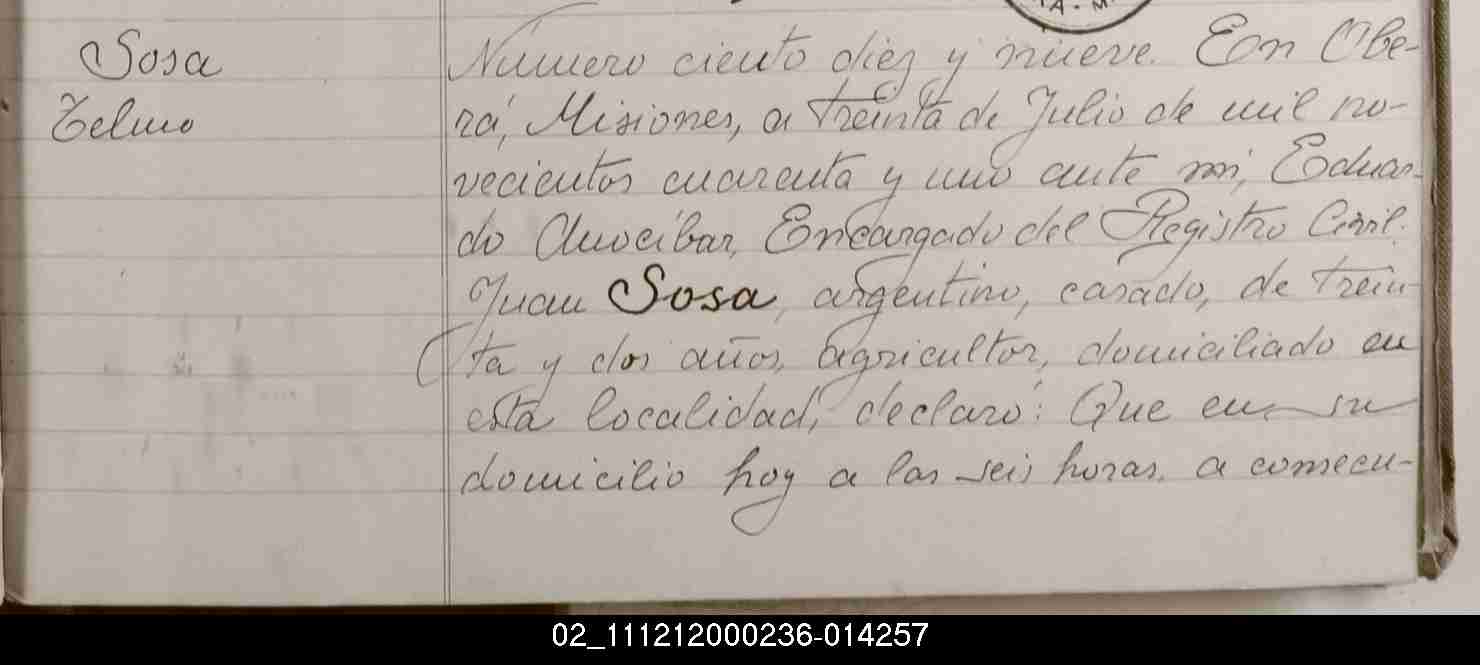 Sosa
Telmo
Número ciento diez y nueve. En Obe-
rá, Misiones, a treinta de Julio de mil no-
vecientos cuarenta y uno ante mí, Eduar-
do Anocíbar, Encargado del Registro Civil.
Juan Sosa, argentino, casado, de trein-
ta y dos años, agricultor, domiciliado en
esta localidad, declaró: Que en su
domicilio hoy a las seis horas, a consecu-
02_111212000236-014257